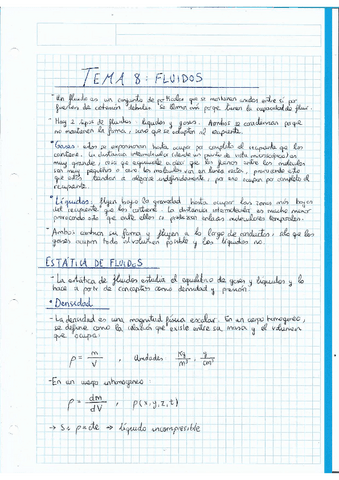 TEMA 8: FLUIDOS
• Un fluido es un conjunto de partículas que se mantienen unidas entre sí por
fuerzas de cohesión débiles. Se llama así porque tienen la capacidad de fluir.
• Hay 2 tipos de fluidos: líquidos y gases. Ambos se consideran porque
no mantienen la forma, sino que se adaptan al recipiente.
• Gases: estos se expansionan hasta ocupar por completo el recipiente que los
contiene. La distancia intermolecular (desde un punto de vista microscópico) es
muy grande, cosa que equivale a decir que las fuerzas entre las moléculas
son muy pequeñas o cero. Las moléculas van en líneas rectas, provocando ésto
que estas tiendan a alejarse indefinidamente, por eso ocupan por completo el
recipiente.
• Líquidos: fluyen bajo la gravedad hasta ocupar las zonas más bajas
del recipiente que los contiene. La distancia intermolecular es mucho menor
provocando ésto que entre ellos se produzcan enlaces moleculares temporales.
• Ambos cambian su forma y fluyen a lo largo de conductos, solo que los
gases ocupan todo el volumen posible y los líquidos no.
ESTÁTICA DE FLUIDOS
- La estática de fluidos estudia el equilibrio de gases y líquidos y lo
hace a partir de conceptos como densidad y presión.
• Densidad
- La densidad es una magnitud física escalar. En un cuerpo homogéneo,
se define como la relación que existe entre su masa y el volumen
que ocupa:
ρ = m/V , Unidades: Kg/m³, g/cm³
- En un cuerpo inhomogéneo:
ρ = dm/dV , ρ(x,y,z,t)
→ Si ρ = cte → Líquido incompresible